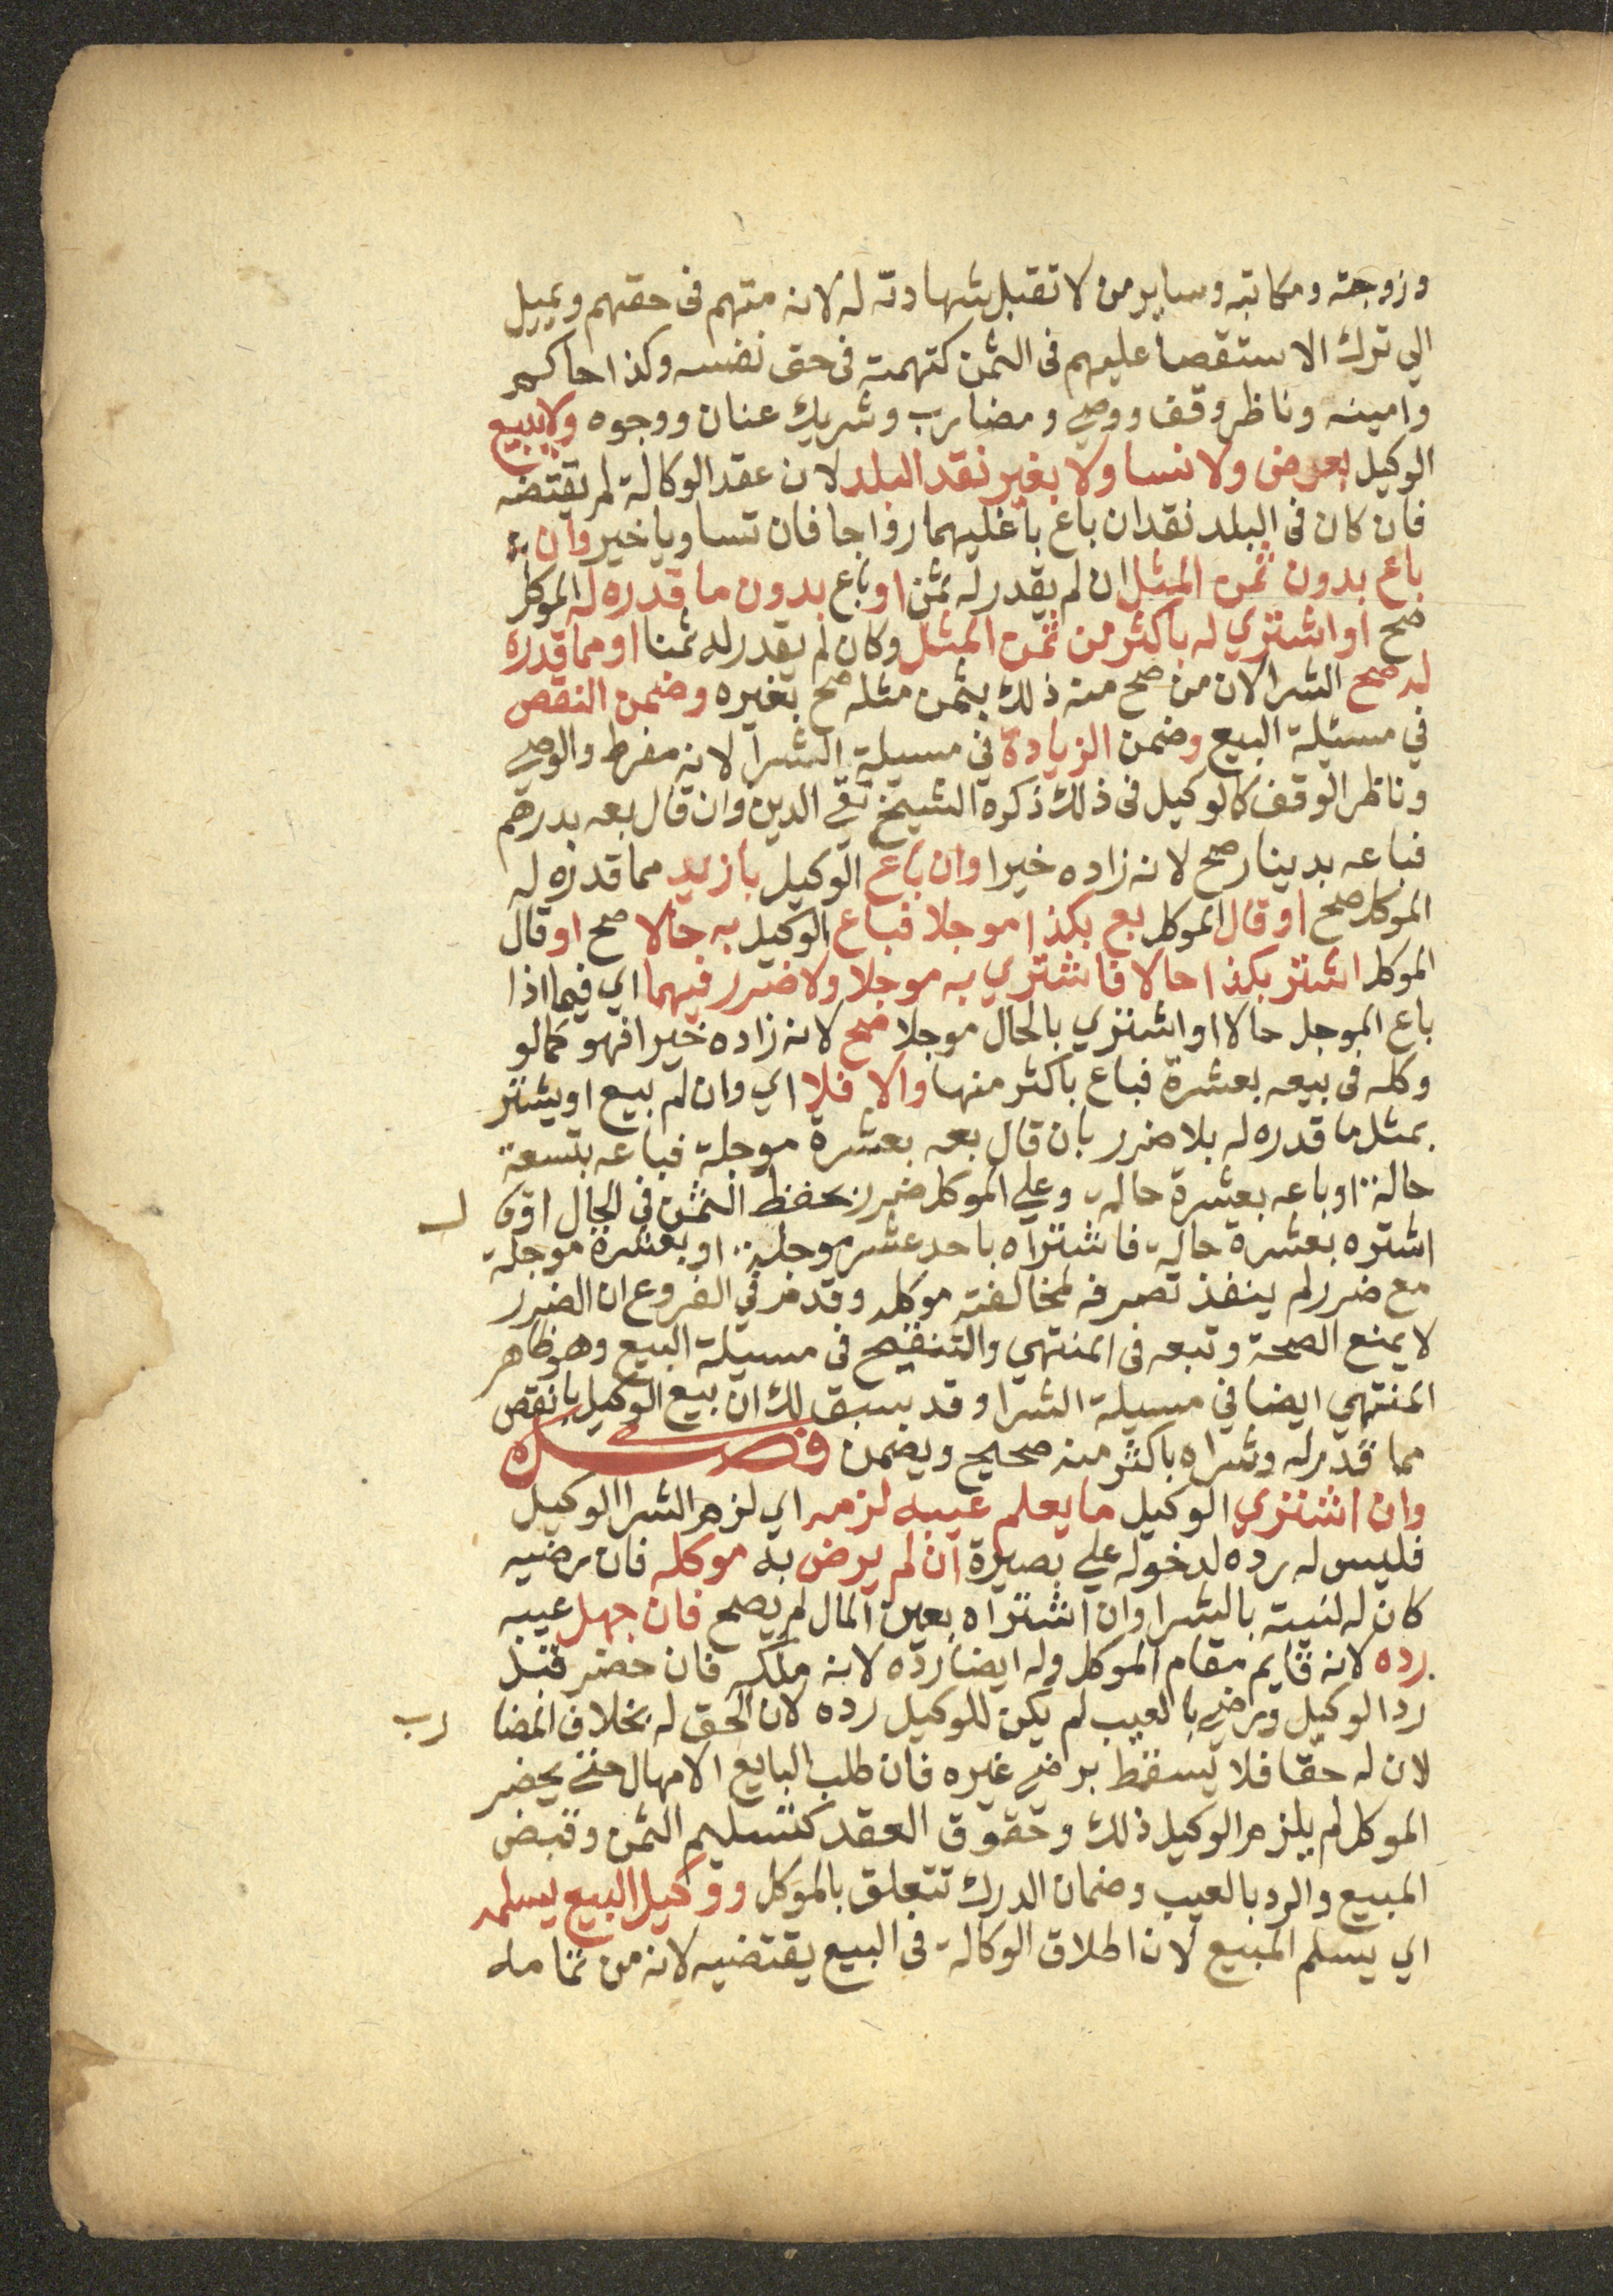 وزوجته ومكاتبه وساير من لا تقبل شهادته له لانه متهم فى حقهم ويميل
الي ترك الاستقصا عليهم فى الثمن كتهمته فى حق نفسه وكذا حاكم
وامينه وناظر وقف ووصي ومضارب وشريك عنان ووجوه ولا يبيع
الوكيل بعرض ولا نسا ولا بغير نقد البلد لان عقد الوكالة لم يقتضه
فان كان فى البلد نقدان باع باغلبهما رواجا فان تساويا خير وان
باع بدون ثمن المثل ان لم يقدر له ثمن او باع بدون ما قدره له الموكل
صح او اشتري له باكثر من ثمن المثل وكان لم يقدر له ثمنا او مما قدره
له صح الشرا لان من صح منه ذلك بثمن مثله صح بغيره وضمن النقص
في مسئلة البيع وضمن الزيادة في مسيلة الشرا لانه مفرط والوصي
وناظر الوقف كالوكيل فى ذلك ذكره الشيخ تقي الدين وان قال بعه بدرهم
فباعه بدينار صح لانه زاده خيرا وان باع الوكيل بازيد مما قدره له
الموكل صح او قال الموكل بع بكذا موجلا فباع الوكيل به حالا صح او قال
الموكل اشتر بكذا حالا فاشتري به موجلا ولا ضرر فيهما اي فيما اذا
باع الموجل حالا او اشتري بالحال موجلا صح لانه زاده خيرا فهو كما لو
وكله فى بيعه بعشرة فباع باكثر منها والا فلا اي وان لم يبيع او يشتر
بمثل ما قدره له بلا ضرر بان قال بعه بعشرة موجلة فباعه بتسعة
حالة او باعه بعشرة حالة وعلي الموكل ضرر بحفظ الثمن في الحال اوقا ل
اشتره بعشرة حالة فاشتراه باحد عشر موجلة او بعشرة موجلة
مع ضرر لم ينفذ تصرفه لمخالفته موكله وقدم في الفروع ان الضرر
لا يمنع الصحة وتبعه فى المنتهي والتنقيح فى مسيلة البيع وهو ظاهر
المنتهي ايضا في مسيلة الشرا وقد سبق لك ان بيع الوكيل بانقص
مما قدر له وشراه باكثر منه صحيح ويضمن فصل
وان اشتري الوكيل ما يعلم عيبه لزمه اي لزم الشرا الوكيل
فليس له رده لدخوله علي بصيرة ان لم يرض به موكله فان رضيه
كان له لنيته بالشرا وان اشتراه بعين المال لم يصح فان جهل عيبه
رده لانه قايم مقام الموكل وله ايضا رده لانه ملكه فان حضر قبل
رد الوكيل ورضي بالعيب لم يكن للوكيل رده لان الحق له بخلاف المضا رب
لان له حقا فلا يسقط برضي غيره فان طلب البايع الامهال حتي يحضر
الموكل لم يلزم الوكيل ذلك وحقوق العقد كتسليم الثمن وقبض
المبيع والرد بالعيب وضمان الدرك تتعلق بالموكل ووكيل البيع يسلمه
اي يسلم المبيع لان اطلاق الوكالة في البيع يقتضيه لانه من تمامه